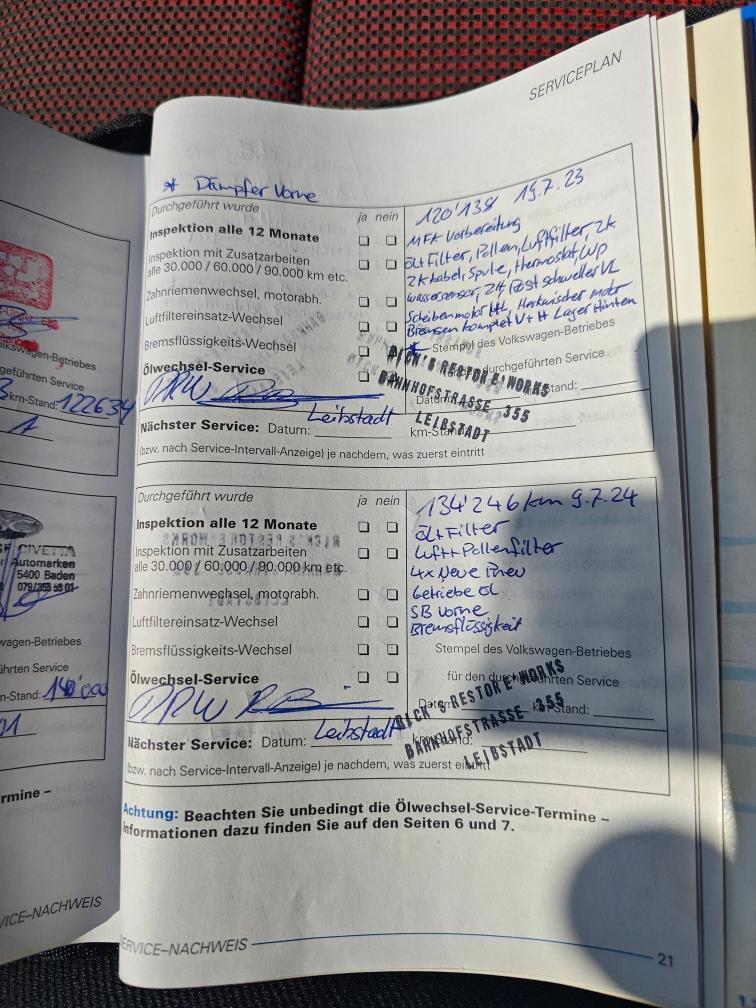 SERVICEPLAN
* Dämpfer Vorne
Durchgeführt wurde
ja nein
Inspektion alle 12 Monate
Inspektion mit Zusatzarbeiten
alle 30.000 / 60.000 / 90.000 km etc.
Zahnriemenwechsel, motorabh.
Luftfiltereinsatz-Wechsel
Bremsflüssigkeits-Wechsel
Ölwechsel-Service
120'138 19.7.23
MFK Vorbereitung
Öl+Filter, Pollen, Luftfilter, ZK
ZK Kabel, Spule, Thermostat, Wp
Wassersensor, Schweller VL
Scheibenmotor
Bremsen komplet V+H Lager Hinten
* Stempel des Volkswagen-Betriebes
durchgeführten Service
RICK'S RESTOR E-WORKS
BAHNHOFSTRASSE 355
LEIBSTADT
RRW
Leibstadt
Nächster Service: Datum:
km-Stand:
(bzw. nach Service-Intervall-Anzeige) je nachdem, was zuerst eintritt
Durchgeführt wurde
ja nein
Inspektion alle 12 Monate
Inspektion mit Zusatzarbeiten
alle 30.000 / 60.000 / 90.000 km etc.
Zahnriemenwechsel, motorabh.
Luftfiltereinsatz-Wechsel
Bremsflüssigkeits-Wechsel
Ölwechsel-Service
134'246 km 9.7.24
Öl+Filter
Luft+Pollenfilter
4x Neue Pneu
Getriebe Öl
SB Vorne
Bremsflüssigkeit
Stempel des Volkswagen-Betriebes
für den durchgeführten Service
Datum: km-Stand:
RICK'S RESTOR E-WORKS
BAHNHOFSTRASSE 355
LEIBSTADT
RRW
Leibstadt
Nächster Service: Datum:
km-Stand:
(bzw. nach Service-Intervall-Anzeige) je nachdem, was zuerst eintritt
Achtung: Beachten Sie unbedingt die Ölwechsel-Service-Termine –
Informationen dazu finden Sie auf den Seiten 6 und 7.
SERVICE–NACHWEIS
21
lkswagen-Betriebes
geführten Service
km-Stand: 122634
CIVETTA
Automarken
5400 Baden
079/355 58 01
wagen-Betriebes
ührten Service
m-Stand: 140'000
rmine –
VICE–NACHWEIS